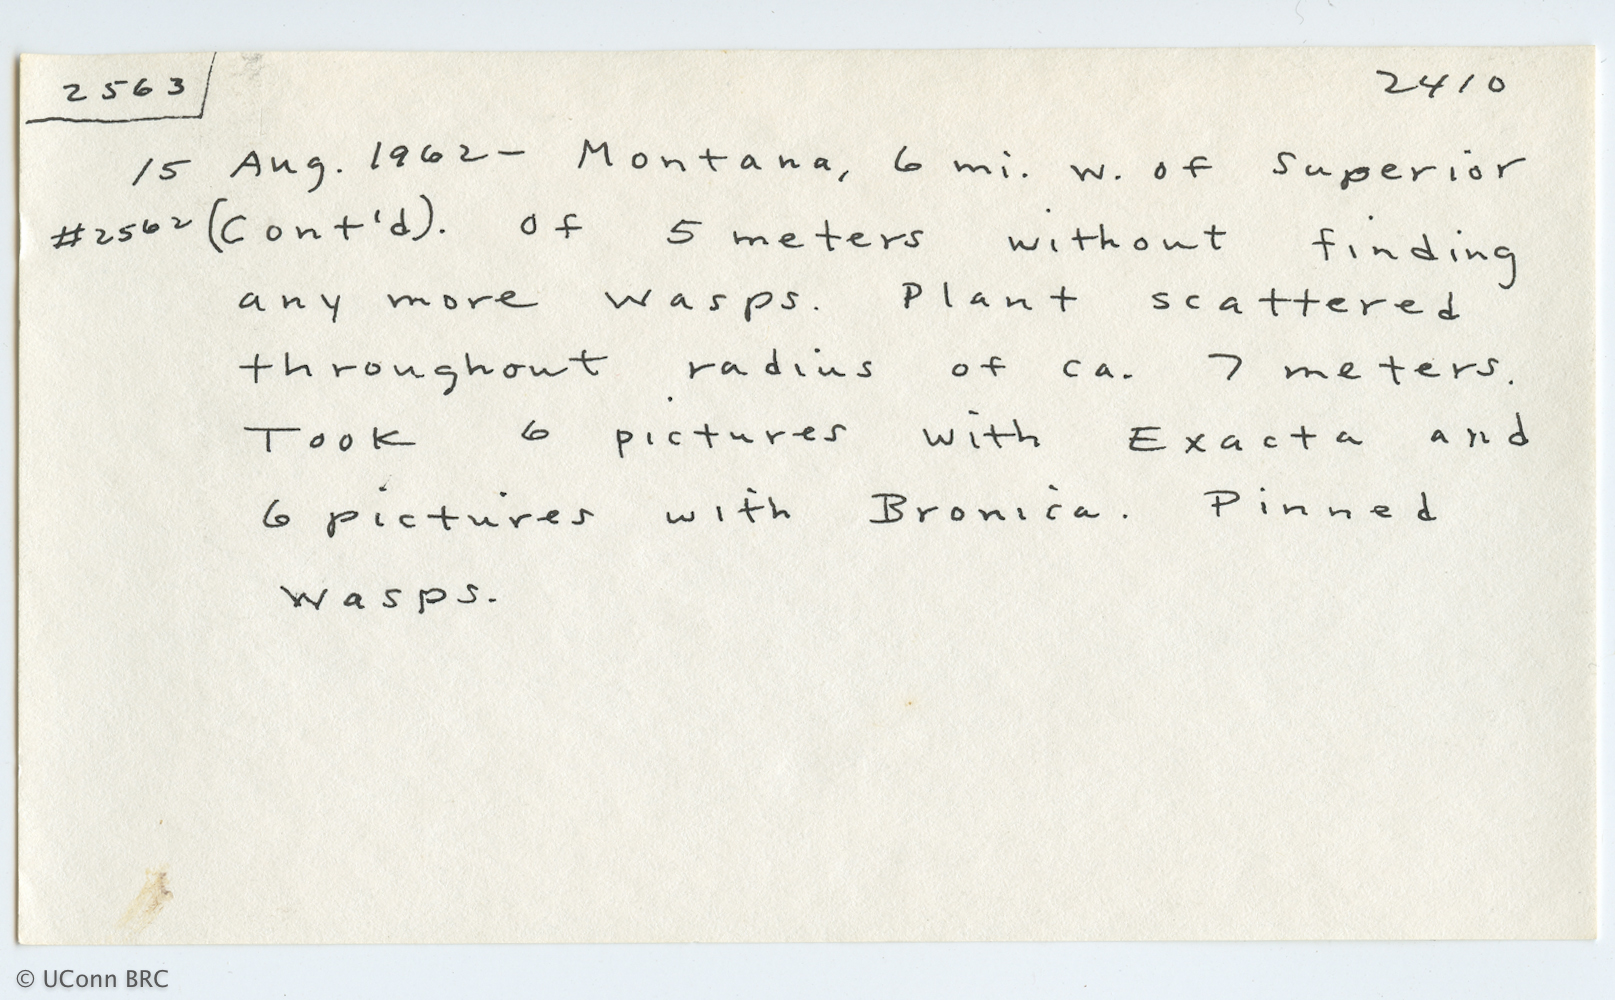 2563
2410
15 Aug. 1962 - Montana, 6 mi. w. of Superior
#2562 (Cont'd). of 5 meters without finding
any more wasps. Plant scattered
throughout radius of ca. 7 meters.
Took 6 pictures with Exacta and
6 pictures with Bronica. Pinned
wasps.
© UConn BRC